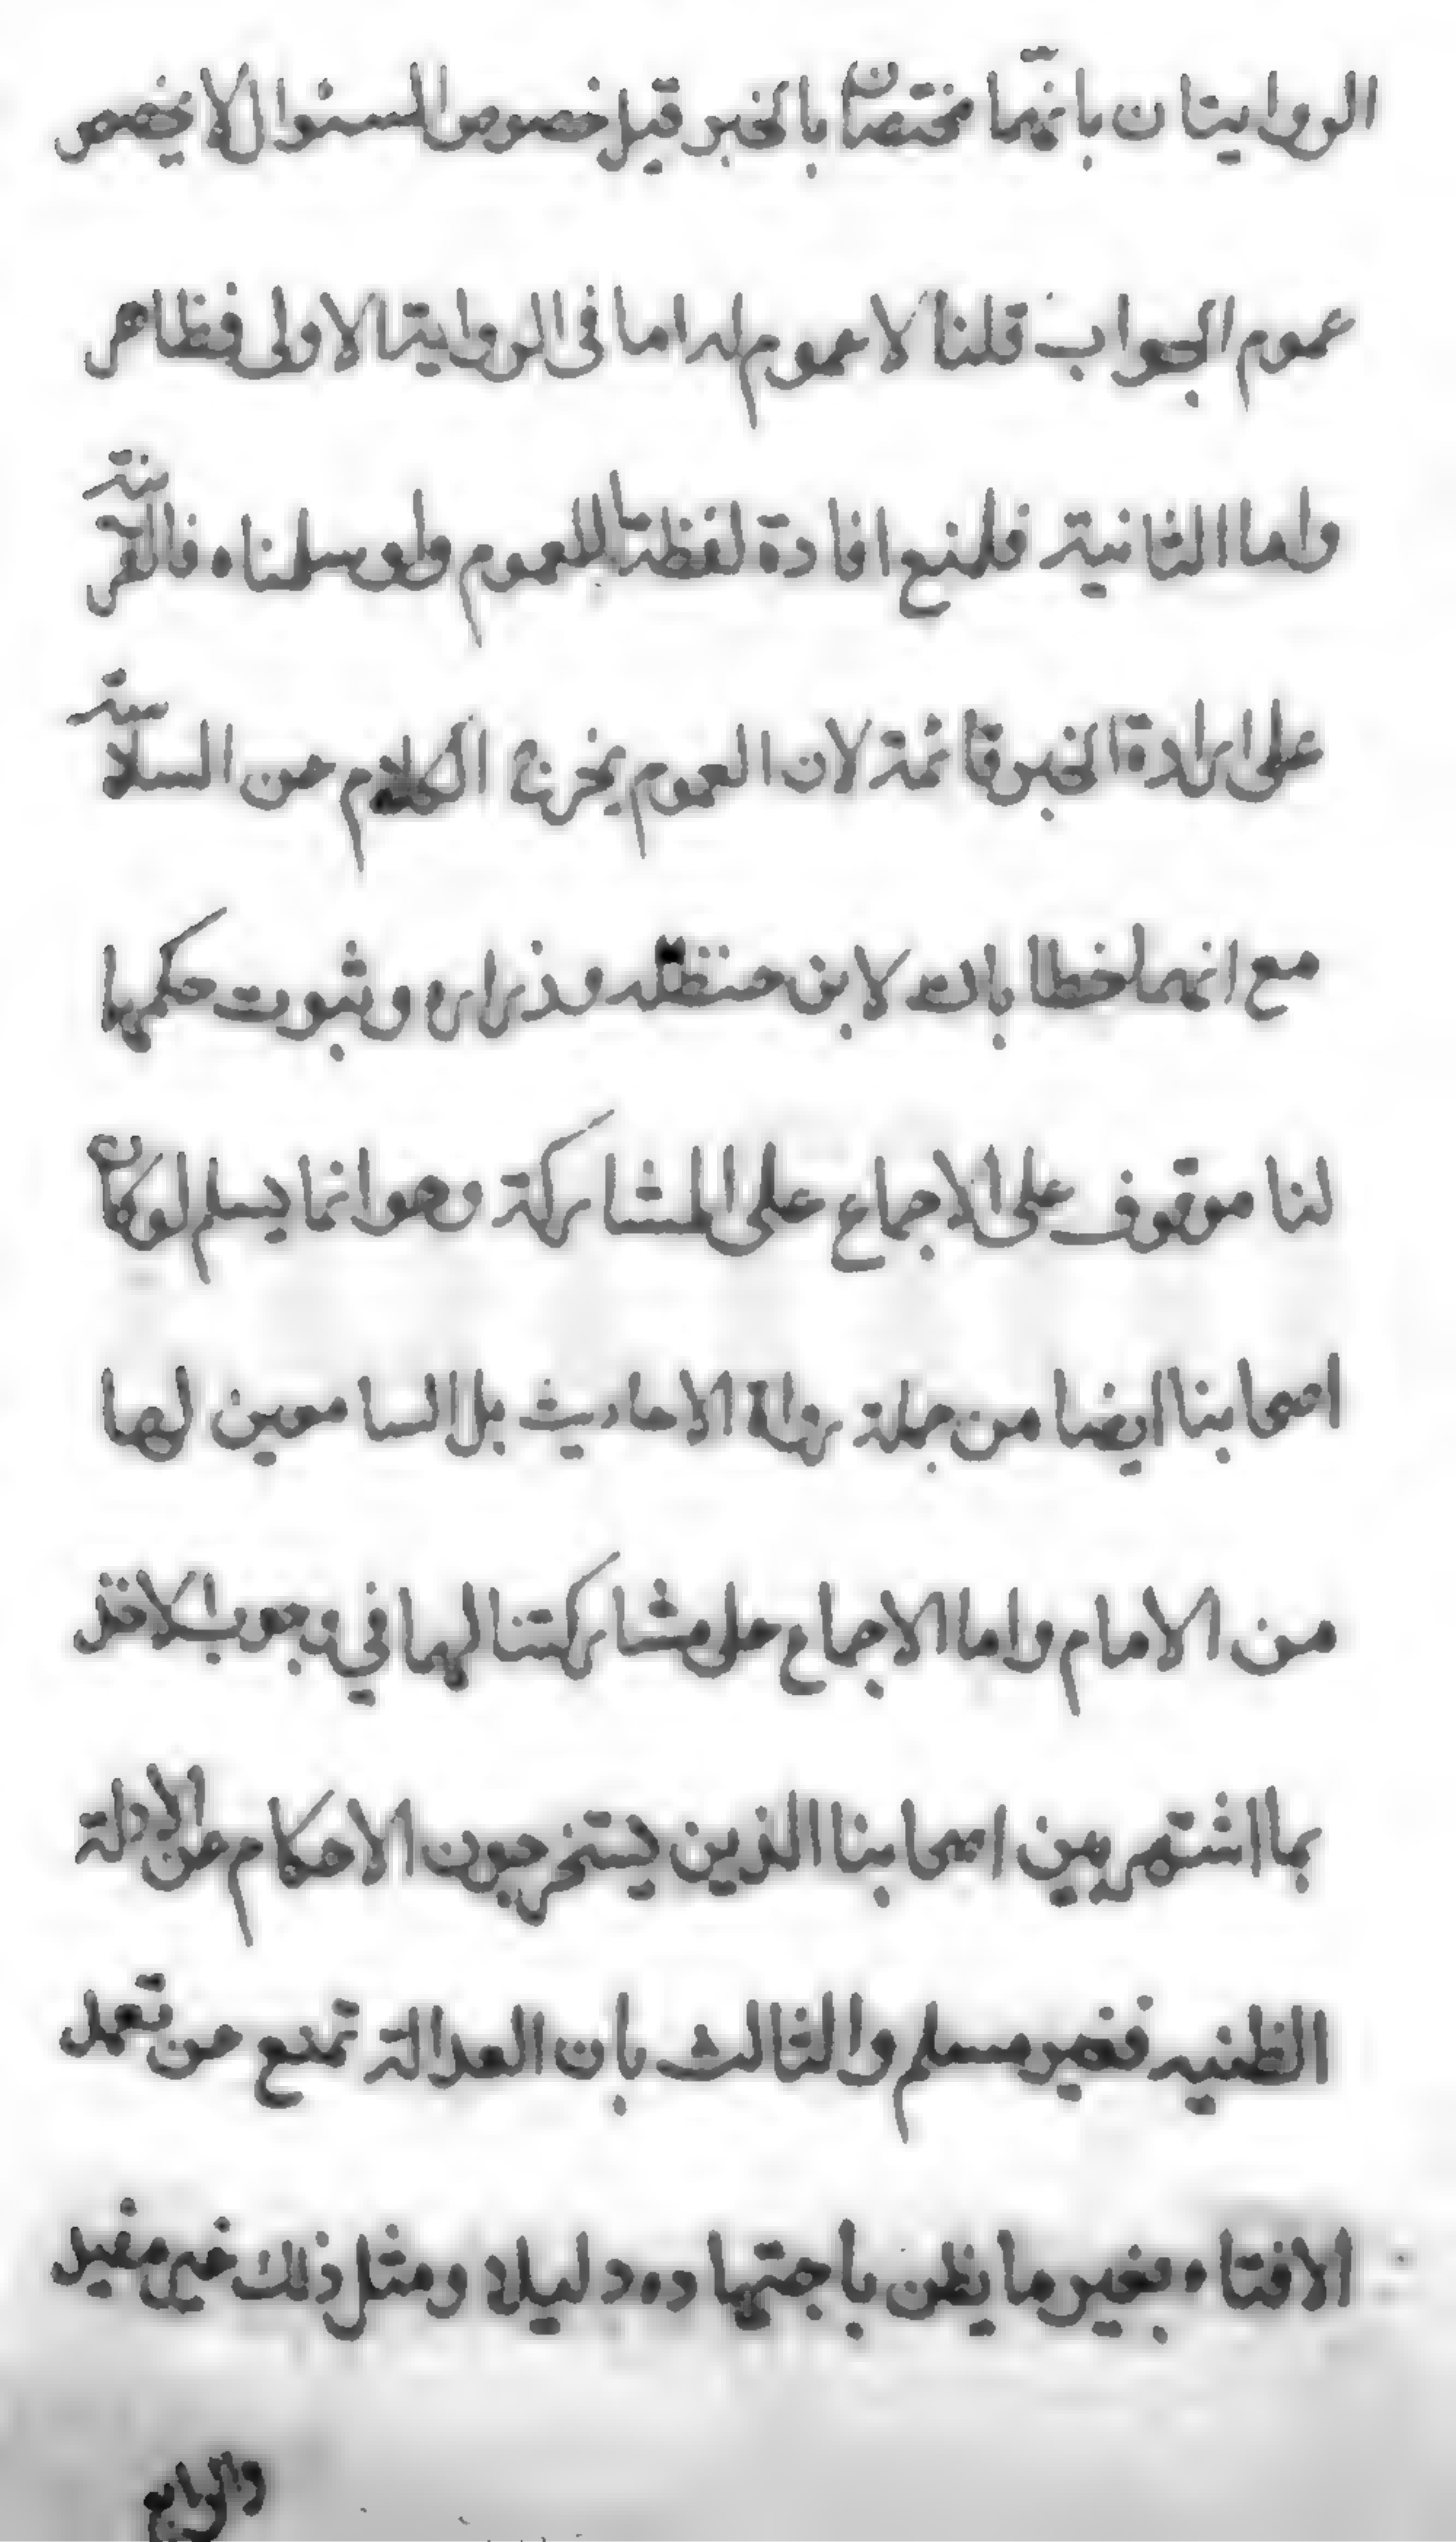 الروايتان بانّهما مختصتان بالخبر قيل خصوص السئوال لا يخصص
عموم الجواب قلنا لا عموم له اما فى الرواية الاولى فظاهر
واما الثانية فلمنع افادة لفظة ما للعموم ولو سلمناه فالقرينة
على ارادة الخبر قائمة لان العموم يخرج الكلام عن السلاسة
مع انهما خطابان لابن حنظله وزراره وثبوت حكمها
لنا موقوف على الاجماع على المشاركة وهو انما يسلم لو كان
اصحابنا ايضا من جملة رواة الاحاديث بل السامعين لها
من الامام واما الاجماع على مشاركتنا لهما في وجوب الاخذ
بما اشتهر بين اصحابنا الذين يستخرجون الاحكام عن الادلة
الظنيه فغير مسلم والثالث بان العدالة تمنع عن تعمد
الافتاء بغير ما يظن باجتهاده دليلا ومثل ذلك غير مفيد
والرابع